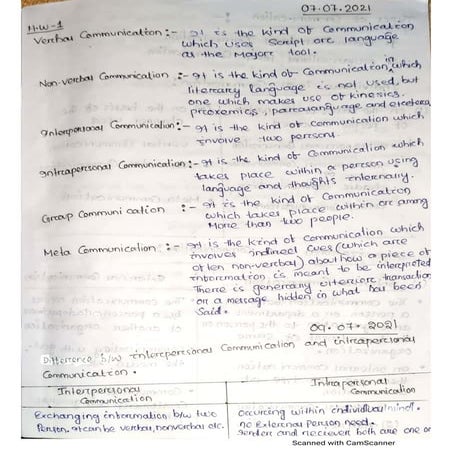 07.07.2021
H.W-1
Verbal Communication :- It is the kind of Communication
which uses Script or language
as the Major tool.
Non-verbal Communication :- It is the kind of Communication, in which
literary language is not used, but
one which makes use of kinesics,
proxemics, paralanguage and etcetera.
Interpersonal Communication :- It is the kind of Communication which
involve two persons.
Intrapersonal Communication :- It is the kind of Communication which
takes place within a person using
language and thoughts internally.
Group Communication :- It is the kind of Communication
which takes place within or among
More than two people.
Meta Communication :- It is the kind of Communication which
involves indirect cues (which are
often non-verbal) about how a piece of
information is meant to be interpreted
There is generally transaction
or a message hidden in what has been
Said.
09.07.2021
Difference b/w interpersonal Communication and intrapersonal
Communication.
Interpersonal Communication
Intrapersonal Communication
Exchanging information b/w two
Person. It can be verbal, nonverbal etc.
Occuring within individual mind.
no External person need.
Sender and reciever both are one or
Scanned with CamScanner